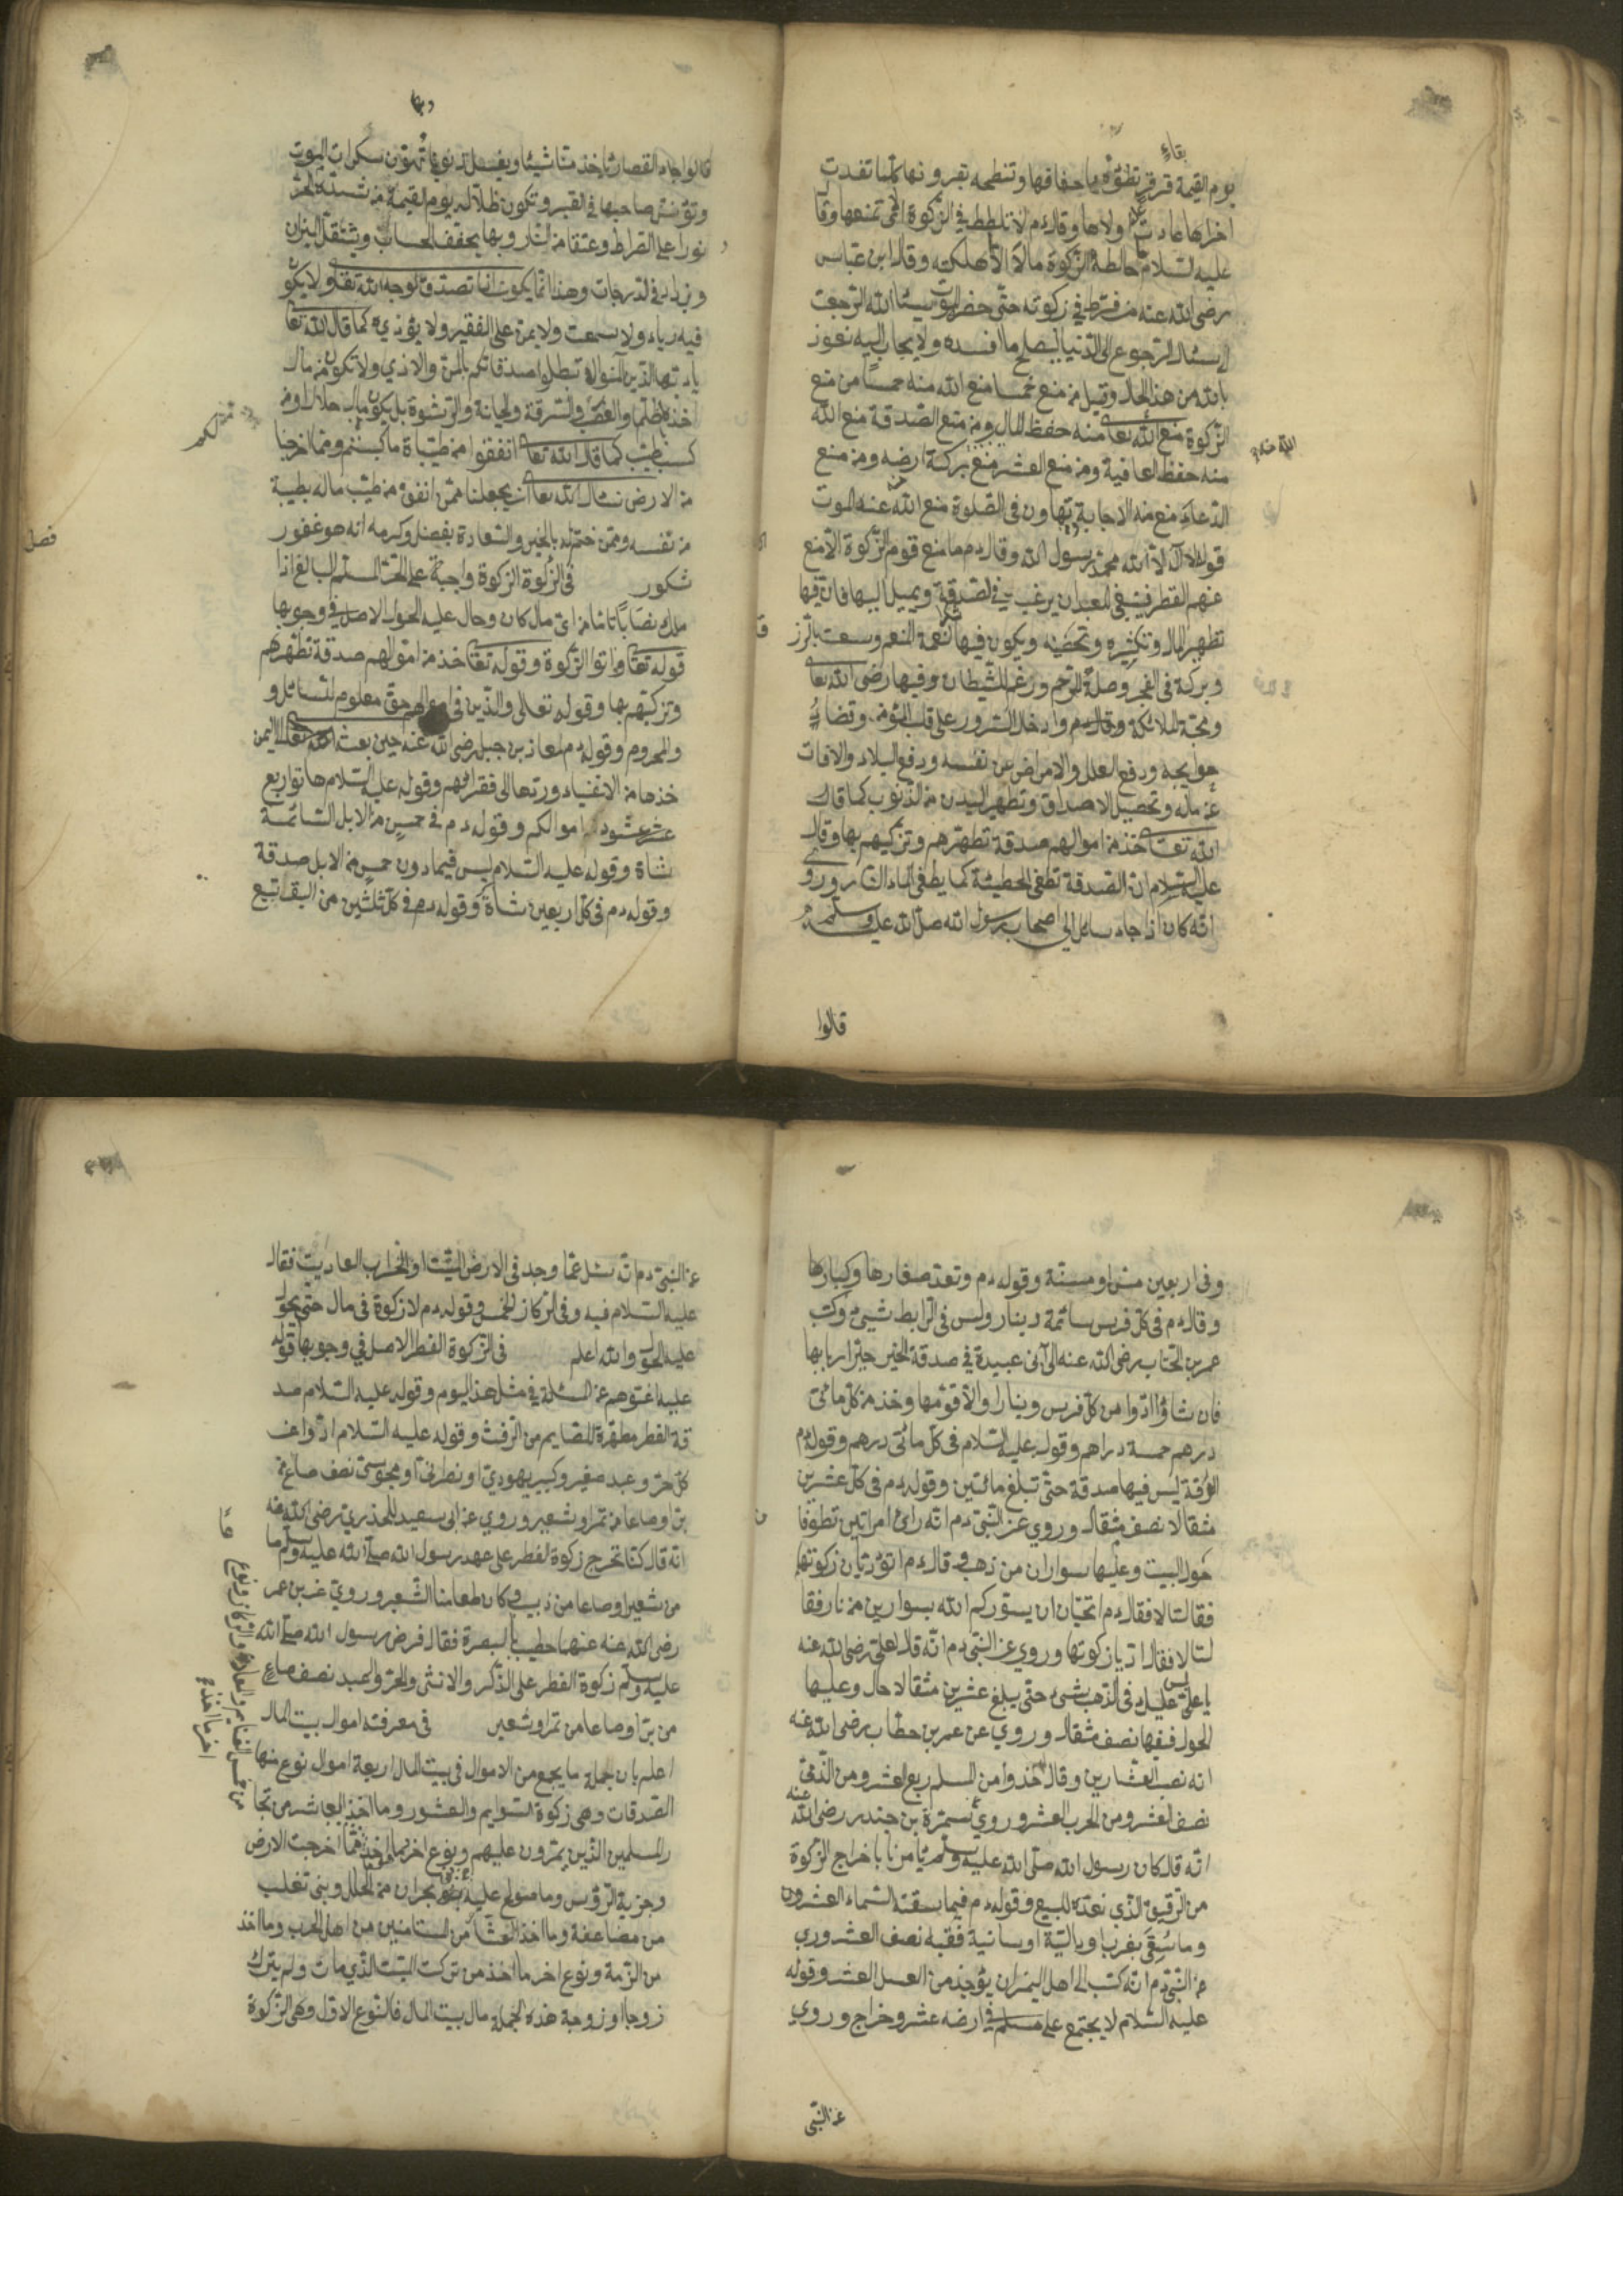 بقاع
يوم القيمة قرقر تطؤه باخفافها وتنطحه بقرونها كلما نفدت
اخراها عادت اولاها وقال دم لا تلطط في الزكوة اى لا تمنعها وقا
عليه السلام ما خالطة الزكوة مالا الا اهلكته وقال ابن عباس
رضى الله عنه من فرط في زكوته حتى حضر الموت سيئا الله الرجعت
اى يسئال الرجوع الى الدنيا ليصلح ما افسده ولا يجاب اليه نعوذ
بالله من هذا الحال وقيل من منع خمسا منع الله منه خمسا من منع
الزكوة منع الله تعا منه حفظ المال ومن منع الصدقة منع الله
منه حفظ العافية ومن منع العشر منع بركة ارضه ومن منع
الدعاء منع منه الاجابة تهاون فى الصلوة منع الله عنه الموت
قول لا اله الا الله محمد رسول الله وقال دم ما منع قوم الزكوة الا منع
عنهم القطر فينبغى للعبد ان يرغب في الصدقة ويميل اليها فان فيها
تطهير المال وتكثيره وتحصينه ويكون فيها شكر نعمة المنعم وسعت بالرز
وبركة فى العمر وصلة الرحم ورغم الشيطان وفيها رضى الله تعا
ومحبة الملائكة وقال دم وادخال السرور على قلب المؤمن وقضاء
حوايجه ودفع العلل والامراض عن نفسه ودفع البلاء والافات
عن ماله وتحصيل الاصداق وتطهير البدن من الذنوب كما قال
الله تعا خذ من اموالهم صدقة تطهرهم وتزكيهم بها وقال
عليه السلام ان الصدقة تطفى الخطيئة كما يطفى الماء النار وروى
انه كان اذا جاء سائل الى اصحاب رسول الله صلى الله عليه وسلم
قالوا
قالوا جاء القصار ياخذ منا شيئا ويغسل ذنوبنا تهون سكرات الموت
وتؤنس صاحبها فى القبر وتكون ظلاله يوم القيمة من شدة الحر
نورا على الصراط وعتقا من النار وبها يخفف الحساب ويثقل الميزان
ويزاد فى الدرجات وهذا انما يكون اذا تصدق لوجه الله تعا ولا يكون
فيه رياء ولا سمعت ولا يمن على الفقير ولا يؤذيه كما قال الله تعا
يا ايها الذين امنوا لا تبطلوا صدقاتكم بالمن والاذى ولا تكون من مال
اخذه ظلما والغصب والسرقة والخيانة والرشوة بل يكون مال حلالا ومن
كسب طيب كما قال الله تعا انفقوا من طيباة ما كسبتم ومما اخرجنا
لكم
من الارض نسال الله تعا ان يجعلنا ممن انفق من طيب ماله بطيبة
من نفسه وممن ختم له بالخير والسعادة بفضله وكرمه انه هو غفور
شكور فى الزكوة الزكوة واجبة على الحر المسلم البالغ اذا
فصل
ملك نصابا تاما من اى مال كان وحال عليه الحول الاصل فى وجوبها
قوله تعا واتوا الزكوة وقوله تعا خذ من اموالهم صدقة تطهرهم
وتزكيهم بها وقوله تعالى والذين فى اموالهم حق معلوم للسائل و
والمحروم وقوله دم لمعاذ بن جبل رضى الله عنه حين بعث الى اليمن
خذها من الاغنياء وردها الى فقرائهم وقوله عليه السلام هاتوا ربع
عشر عشور اموالكم وقوله دم فى خمس من الابل السائمة
شاة وقوله عليه السلام ليس فيما دون خمس من الابل صدقة
وقوله دم فى كل اربعين شاة شاة وقوله دم فى كل ثلثين من البقر تبيع
وفى اربعين مسن او مسنة وقوله دم وتعد صغارها وكبارها
وقال دم فى كل فرس سائمة دينار وليس فى الرابط شيئ وكتب
عمر بن الخطاب رضى الله عنه الى ابى عبيدة فى صدقة الخيل خير اربابها
فان شاؤا ادوا من كل فرس دينارا والا قومها وخذ من كل مائتى
درهم خمسة دراهم وقوله عليه السلام فى كل مائتى درهم وقوله دم
الرقة ليس فيها صدقة حتى تبلغ مائتين وقوله دم فى كل عشرين
مثقالا نصف مثقال وروى عن النبى دم انه راى امراتين تطوفا
حول البيت وعليها سواران من ذهب فقال دم اتؤديان زكوتها
فقالتا لا فقال دم اتحبان ان يسوركم الله بسوارين من نار فقا
لتا لا فقال اديا زكوتها وروى عن النبى دم انه قال لعلى رضى الله عنه
يا على ليس عليك فى الذهب شئ حتى يبلغ عشرين مثقالا حال وعليها
الحول ففيها نصف مثقال وروى عن عمر بن خطاب رضى الله عنه
انه نصب العشارين وقال خذوا من المسلم ربع العشر ومن الذمى
نصف العشر ومن الحرب العشر وروى سمرة بن جندر رضى الله عنه
انه قال كان رسول الله صلى الله عليه وسلم يامرنا باخراج الزكوة
من الرقيق الذى نعده للبيع وقوله دم فيما سقته السماء العشر ون
وما سقى بغرب او دالية او سانية ففيه نصف العشر وروى
عن النبى دم انه كتب الى اهل اليمن ان يؤخذ من العسل العشر وقوله
عليه السلام لا يجتمع على مسلم فى ارضه عشر وخراج وروى
عن النبى
عن النبى دم انه سئل عما وجد فى الارض الميتة او الخراب العاديت فقال
عليه السلام فيه وفى الركاز الخمس وقوله دم لا زكوة فى مال حتى يحول
عليه الحول والله اعلم فى الزكوة الفطر الاصل فى وجوبها قوله
عليه اغنوهم عن المسئلة فى مثل هذا اليوم وقوله عليه السلام صد
قة الفطر مطهرة للصايم من الرفث وقوله عليه السلام ادوا عن
كل حر وعبد صغير وكبير يهودى او نصرانى او مجوسى نصف صاع من
بر او صاعا من تمر او شعير وروى عن ابى سعيد الخذرى رضى الله عنه
انه قال كنا نخرج زكوة الفطر على عهد رسول الله صلى الله عليه وسلم صاعا
من شعير او صاعا من زبيب وكان طعامنا الشعير وروى عن بن عمر
رضى الله عنه عنهما خطب بالبصرة فقال فرض رسول الله صلى الله
عليه وسلم زكوة الفطر على الذكر والانثى والحر والعبد نصف صاع
من بر او صاعا من تمر او شعير فى معرفة اموال بيت المال
اعلم بان جملة ما يجمع من الاموال فى بيت المال اربعة اموال نوع منها
الصدقات وهى زكوة السوايم والعشور وما اخذ العاشر من تجا
ر المسلمين الذين يمرون عليهم ونوع اخر ما اخذ مما اخرجت الارض
وجزية الرؤس وما صولح عليه بنو نجران من الحلل وبنى تغلب
من مضاعفة وما اخذ العشار من المستامنين من اهل الحرب وما اخذ
من الزمة ونوع اخر ما اخذ من تركت الميت الذى مات ولم يترك
زوجا او زوجة هذه الجملة مال بيت المال فالنوع الاول وهى الزكوة